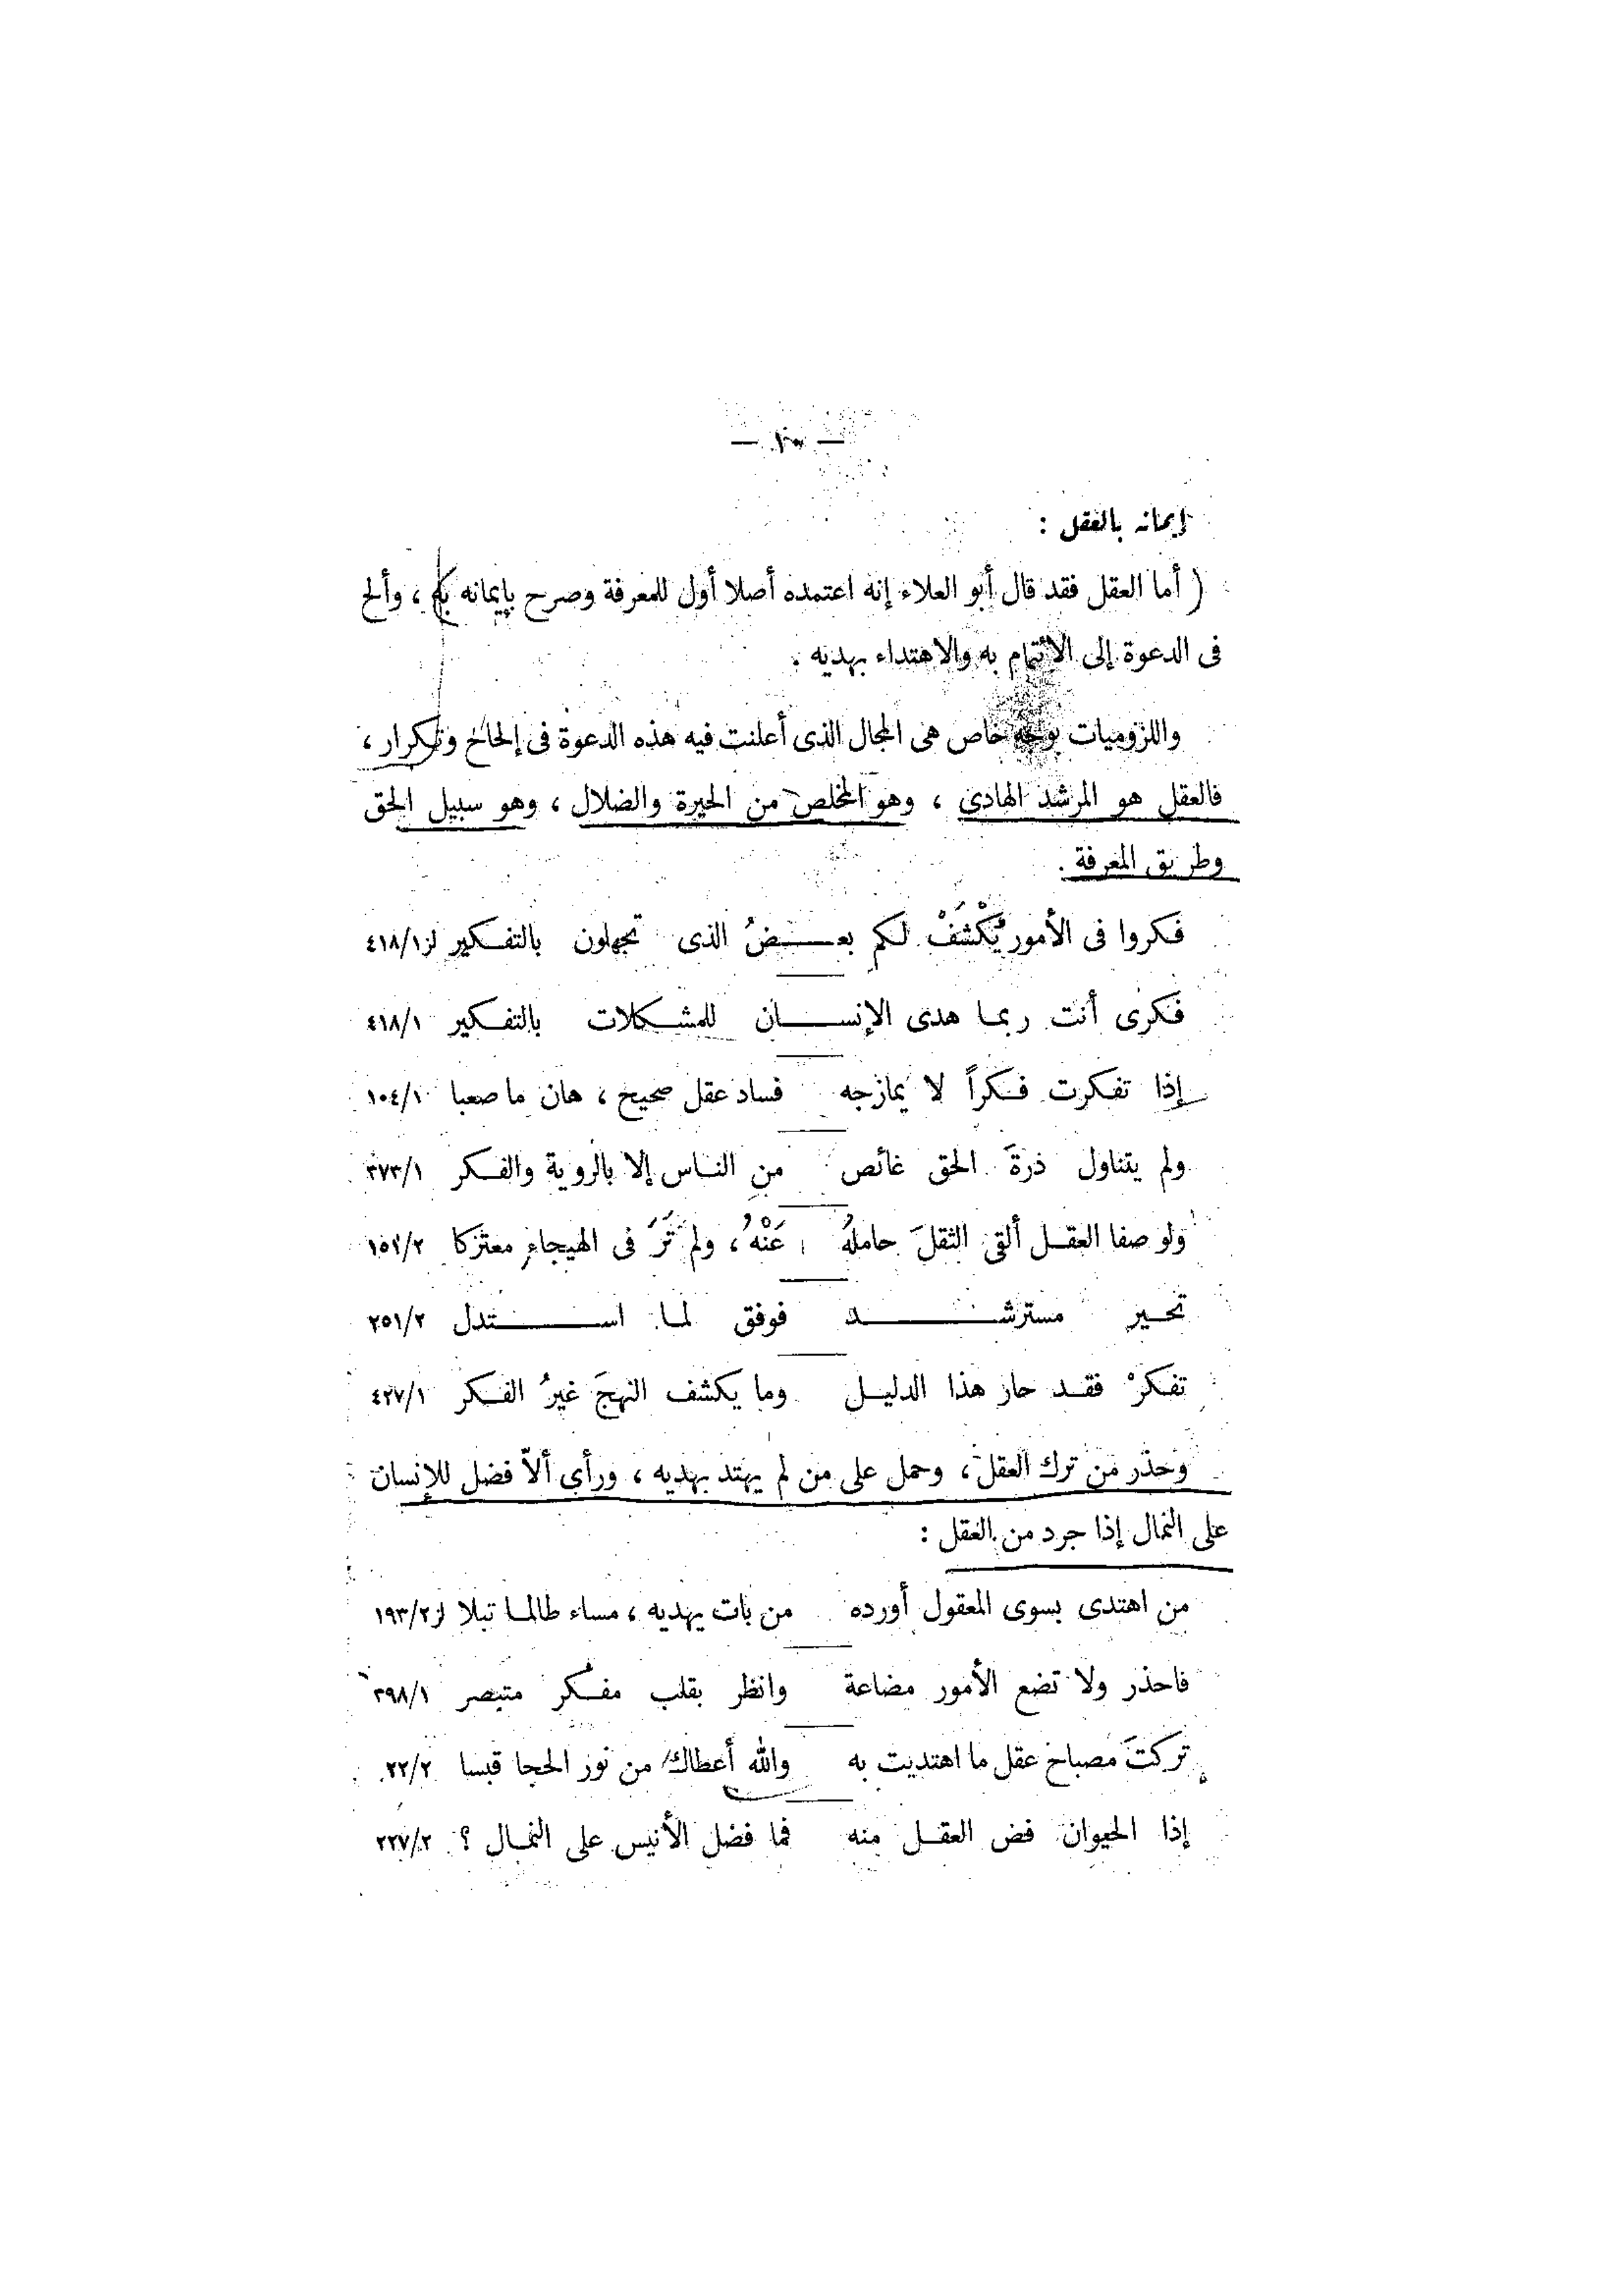 إيمانه بالعقل :
( أما العقل فقد قال أبو العلاء إنه اعتمده أصلا أول للمعرفة وصرح بإيمانه به ، وألح
فى الدعوة إلى الائتمام به والاهتداء بهديه .
واللزوميات بوجه خاص هى المجال الذى أعلنت فيه هذه الدعوة فى إلحاح وتكرار ،
فالعقل هو المرشد الهادى ، وهو المخلص من الحيرة والضلال ، وهو سبيل الحق
وطريق المعرفة .
فكروا فى الأمور يُكْشَفْ لكم بعـضُ الذى تجهلون بالتفكير لز ٤١٨/١
فكرى أنت ربما هدى الإنسـان للمشكلات بالتفكير ٤١٨/١
إذا تفكرت فكراً لا يمازجه فساد عقل صحيح ، هان ما صعبا ١٠٤/١
ولم يتناول ذرةَ الحق غائص من الناس إلا بالروية والفكر ٣٧٣/١
ولو صفا العقل ألقى الثقلَ حاملهُ عَنْهُ ، ولم تَرَ فى الهيجاء معتركا ١٥١/٢
تحير مسترشـد فوفق لما استدل ٢٥١/٢
تفكرْ فقد حار هذا الدليل وما يكشف النهجَ غيرُ الفكر ٤٢٧/١
وحذر من ترك العقل ، وحمل على من لم يهتد بهديه ، ورأى ألاّ فضل للإنسان
على النمال إذا جرد من العقل :
من اهتدى بسوى المعقول أورده من بات يهديه ، مساء طالما تبلا لز ١٩٣/٢
فاحذر ولا تضع الأمور مضاعة وانظر بقلب مفكر متبصر ٣٩٨/١
تركتَ مصباح عقل ما اهتديت به والله أعطاك من نور الحجا قبسا ٢٢/٢
إذا الحيوان فض العقل منه فما فضل الأنيس على النمال ؟ ٢٢٧/٢